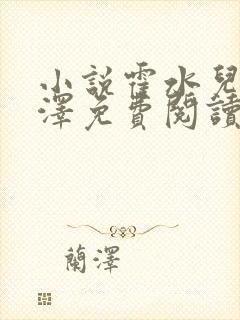 小說霍水兒
澤免費閱讀
蘭澤